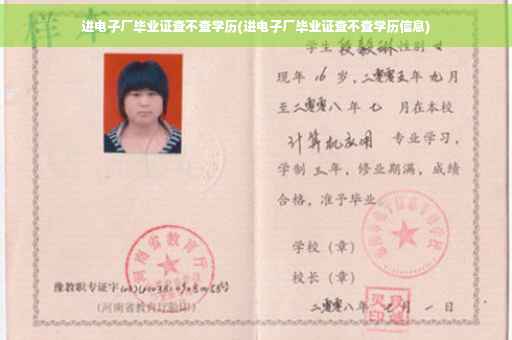 进电子厂毕业证查不查学历(进电子厂毕业证查不查学历信息)
样本
学生段毅琳性别女
现年16岁，二零零五年九月
至二零零八年七月在本校
计算机应用 专业学习，
学制三年，修业期满，成绩
合格，准予毕业
学校（章）
校长（章）
二零零八年七月一日
河南省教育厅
豫教职专证字
（河南省教育厅验印）